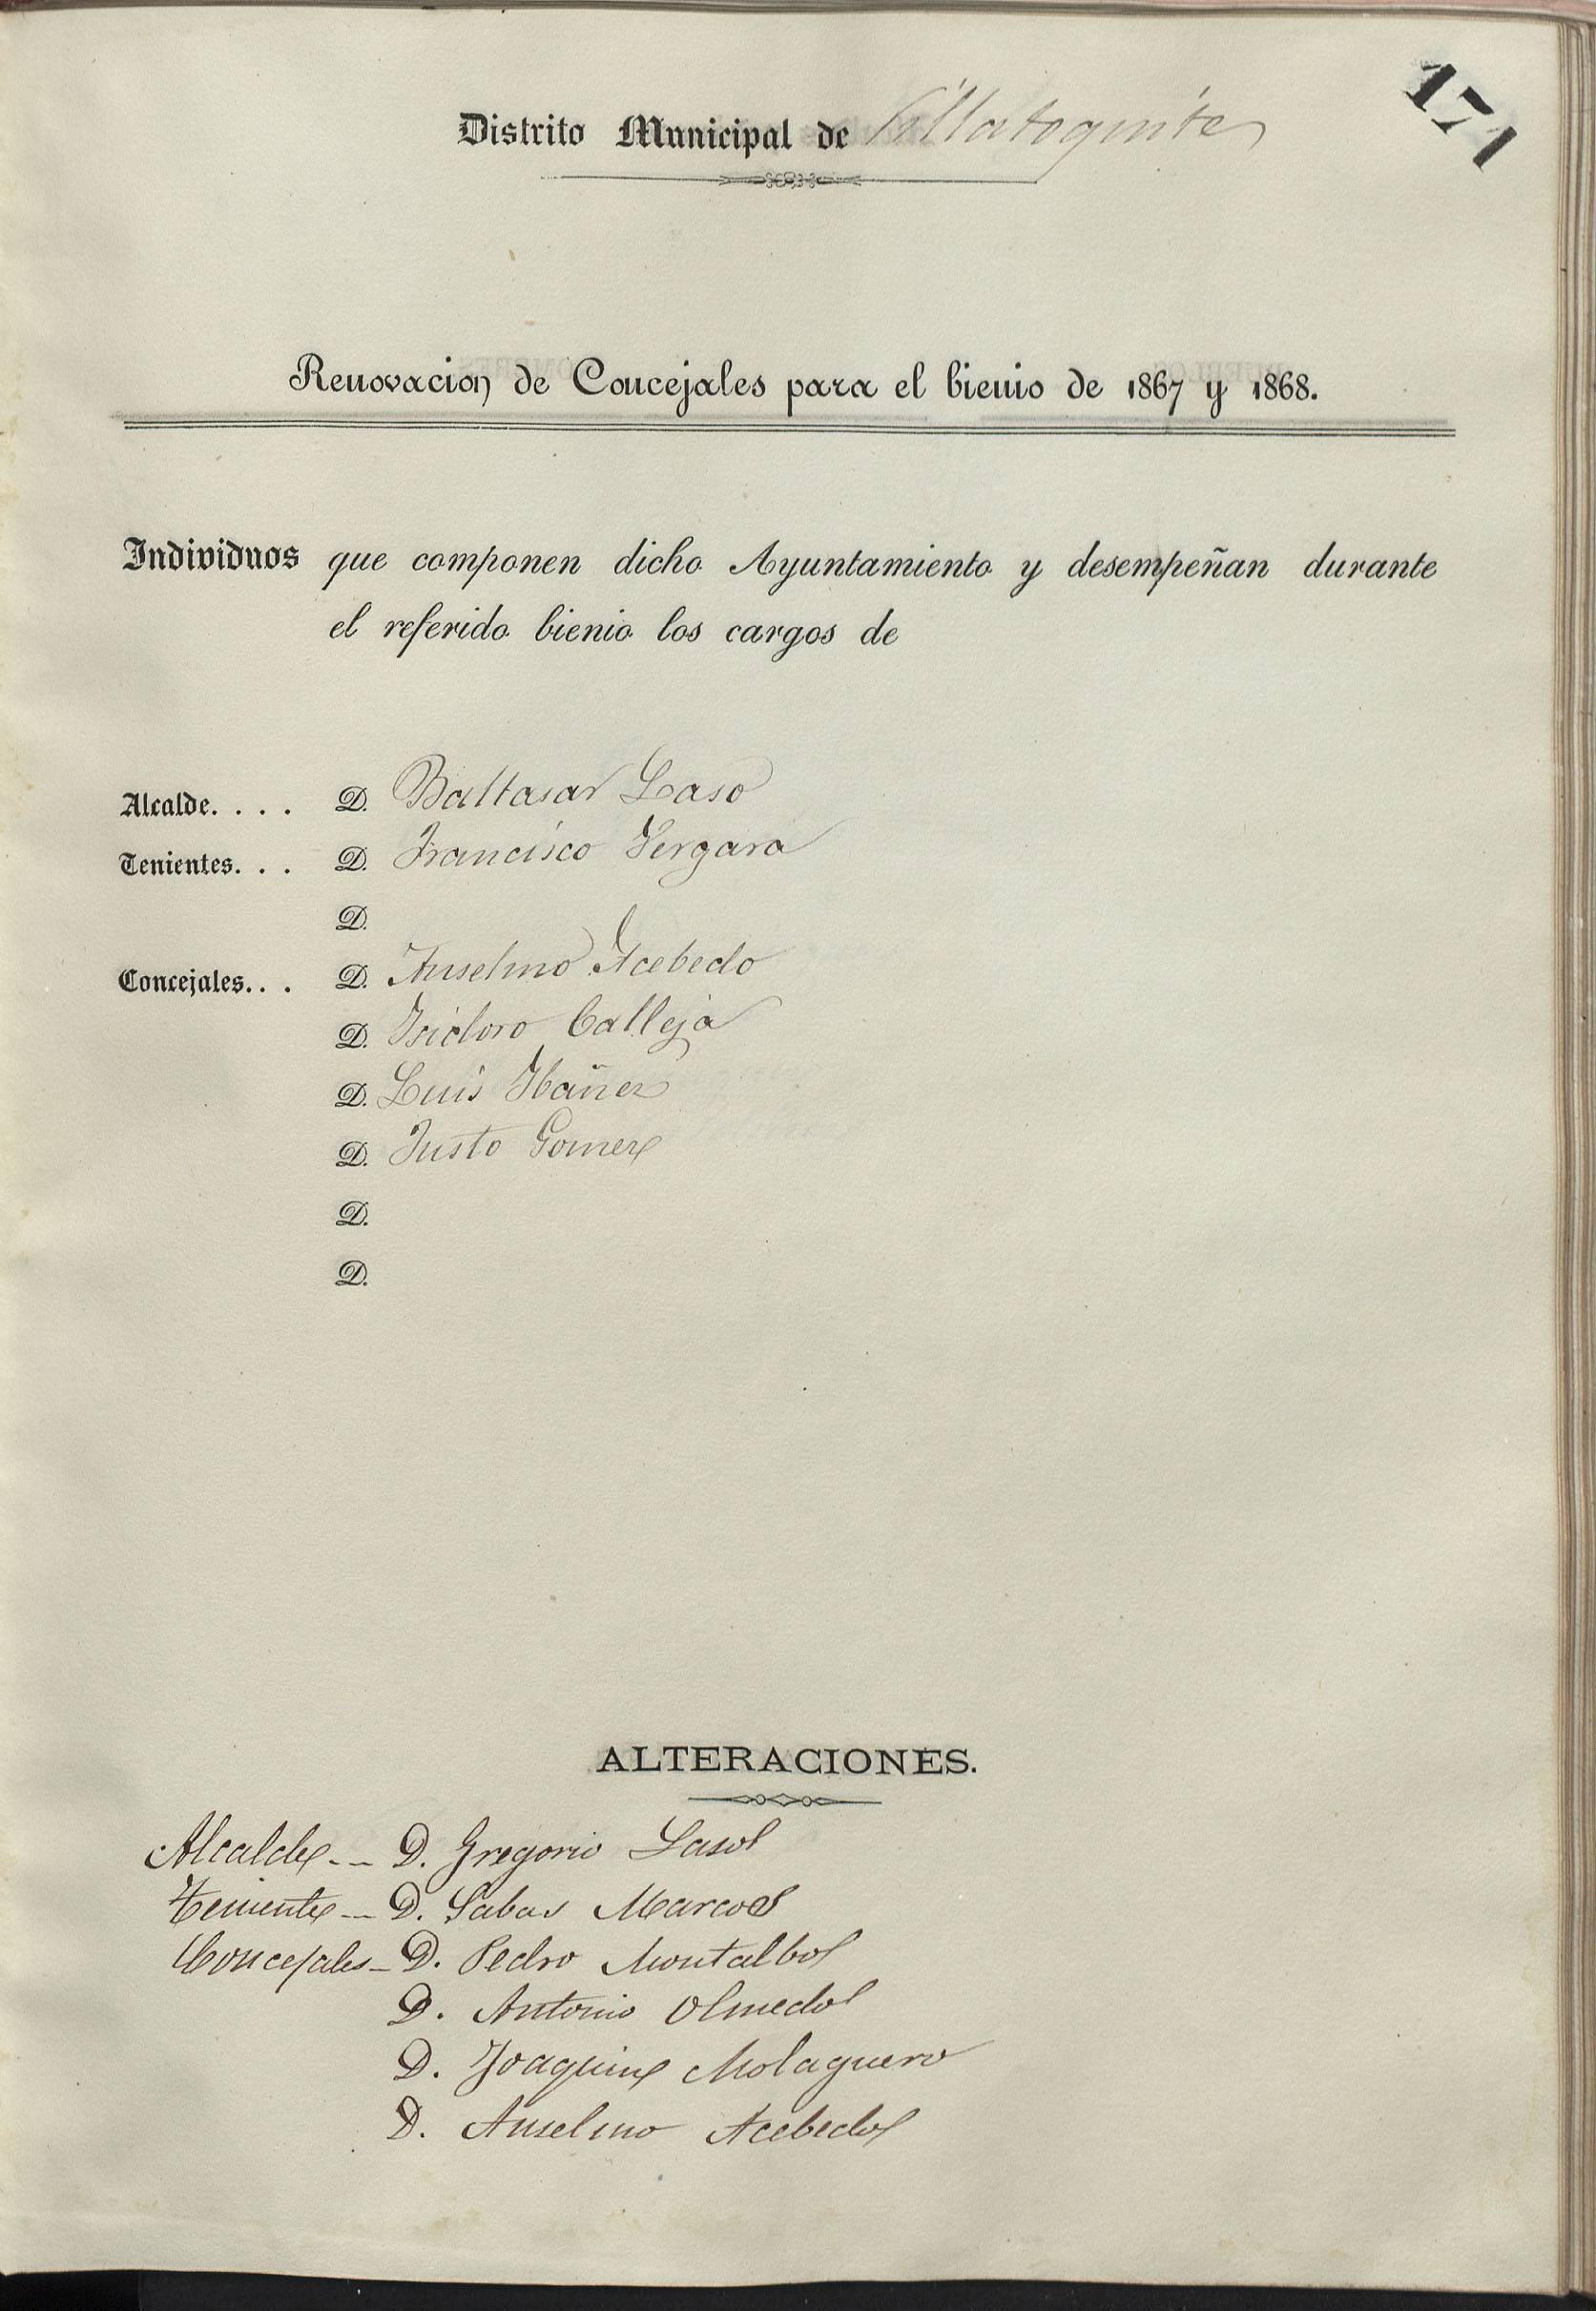 171
Distrito Municipal de Villatoquite
Renovacion de Concejales para el bienio de 1867 y 1868.
Individuos que componen dicho Ayuntamiento y desempeñan durante
el referido bienio los cargos de
Alcalde. . . . D. Baltasar Laso
Tenientes. . . D. Francisco Vergara
D.
Concejales. . . D. Anselmo Acebedo
D. Isidoro Calleja
D. Luis Ibañez
D. Justo Gomez
D.
D.
ALTERACIONES.
Alcalde -- D. Gregorio Laso
Teniente -- D. Sabas Marcos
Concejales - D. Pedro Montalbo
D. Antonio Olmedo
D. Joaquin Molaguero
D. Anselmo Acebedo